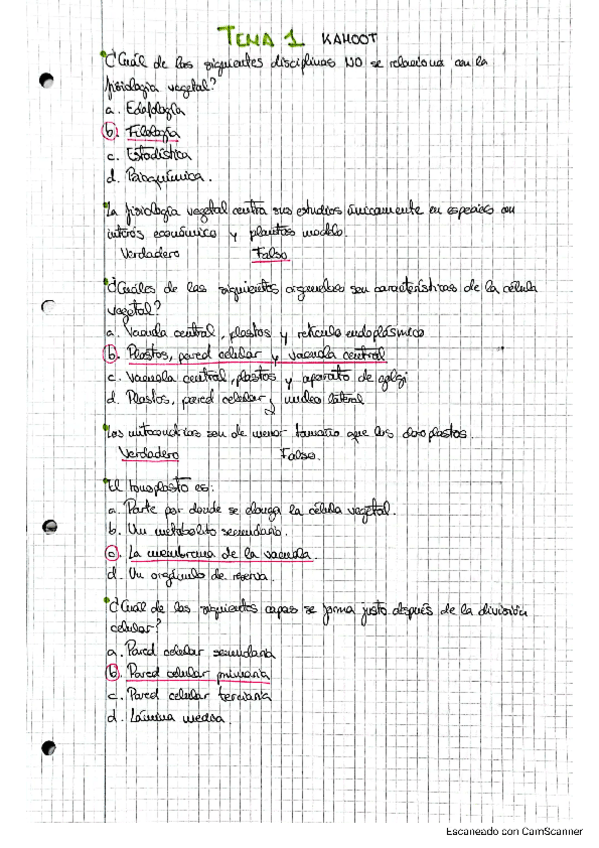 TEMA 1 KAHOOT
¿Cuál de las siguientes disciplinas NO se relaciona con la
fisiología vegetal?
a. Edafología
b. Filología
c. Estadística
d. Bioquímica.
La fisiología vegetal centra sus estudios únicamente en especies con
interés económico y plantas modelo.
Verdadero Falso
¿Cuáles de los siguientes orgánulos son características de la célula
vegetal?
a. Vacuola central, plastos y retículo endoplásmico
b. Plastos, pared celular y vacuola central
c. Vacuola central, plastos y aparato de golgi
d. Plastos, pared celular y núcleo lateral
Las mitocondrias son de menor tamaño que los cloroplastos.
Verdadero Falso.
El tonoplasto es:
a. Parte por donde se elonga la célula vegetal.
b. Un metabolito secundario.
c. La membrana de la vacuola.
d. Un orgánulo de reserva.
¿Cuál de las siguientes capas se forma justo después de la división
celular?
a. Pared celular secundaria
b. Pared celular primaria
c. Pared celular terciaria
d. Lámina media.
Escaneado con CamScanner